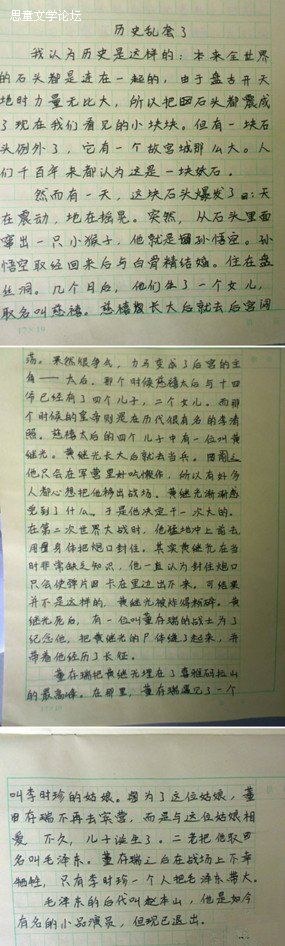 思童文学论坛
历史乱套了
我认为历史是这样的：本来全世界
的石头都是连在一起的，由于盘古开天
地时力量无比大，所以把石头都震成
了现在我们看见的小块块。但有一块石
头例外了，它有一个故宫城那么大。人
们千百年来都认为这是一块妖石。
然而有一天，这块石头爆发了：天
在震动，地在摇晃。突然，从石头里面
窜出一只小猴子，他就是孙悟空。孙
悟空取经回来后与白骨精结婚。住在盘
丝洞。几个月后，他们生了一个女儿，
取名叫慈禧。慈禧长大后就去后宫闯
荡。果然很争气，力马变成了后宫的主
角——太后。那个时候慈禧太后与十四
爷已经有了四个儿子，二个女儿。而那
个时候的皇帝则是在历代很有名的李清
照。慈禧太后的四个儿子中有一位叫黄
继光。黄继光长大后就去当兵。
他只会在军营里好吃懒作，所以有好多
人都心想把他棒出战场。黄继光渐渐感
觉到了什么。于是他决定干一次大的。
在第二次世界大战时，他猛地冲上前去，
用身体把炮口封住。其实黄继光在当
时非常缺乏知识，他一直认为封住炮口
只会使弹片卡在里边出不来，可结果
并不是这样的，黄继光被炸得粉碎。黄
继光死后，有一位叫董存瑞的战士为了
纪念他，把黄继光的尸体缝了起来，并
带着他经历了长征。
董存瑞把黄继光埋在了喜马拉雅山
的最高峰。在那里，董存瑞遇见了一个
叫李时珍的姑娘。为了这位姑娘，董
存瑞不再去军营，而是与这位姑娘相
爱，不久，儿子诞生了。二老把他取
名叫毛泽东。董存瑞之后在战场上不幸
牺牲，只有李时珍一个人把毛泽东带大。
毛泽东的后代叫赵本山，他是如今
有名的小品演员，但现已退出。
17×19